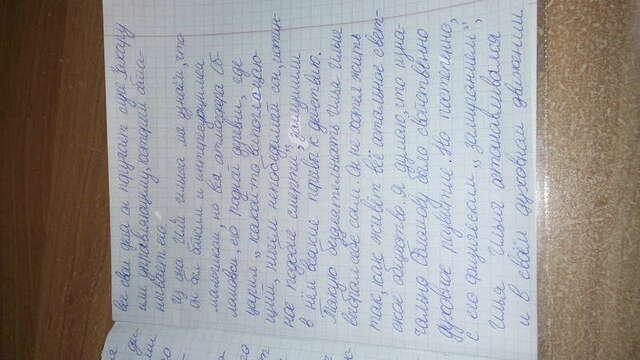 все свои дела он поручает слуге Захару
или управляющему, который обма-
нывает его.
Из сна Ильи Ильича мы узнаём, что
он был бойким и интересующимся
мальчиком, но вся атмосфера Об-
ломовки, его родной деревни, где
царил „какой-то всепоглощаю-
щий, ничем непобедимый сон, истин-
ное подобие смерти", заглушили
в нём всякие порывы к действию.
Такую бездеятельность Илья Ильич
выбрал себе сам. Он не хотел жить
так, как живёт всё остальное свет-
ское общество. Я думаю, что изна-
чально Обломову было свойственно
духовное развитие. Но постепенно,
с его физическим „замиранием",
Илья Ильич останавливался
и в своём духовном движении.